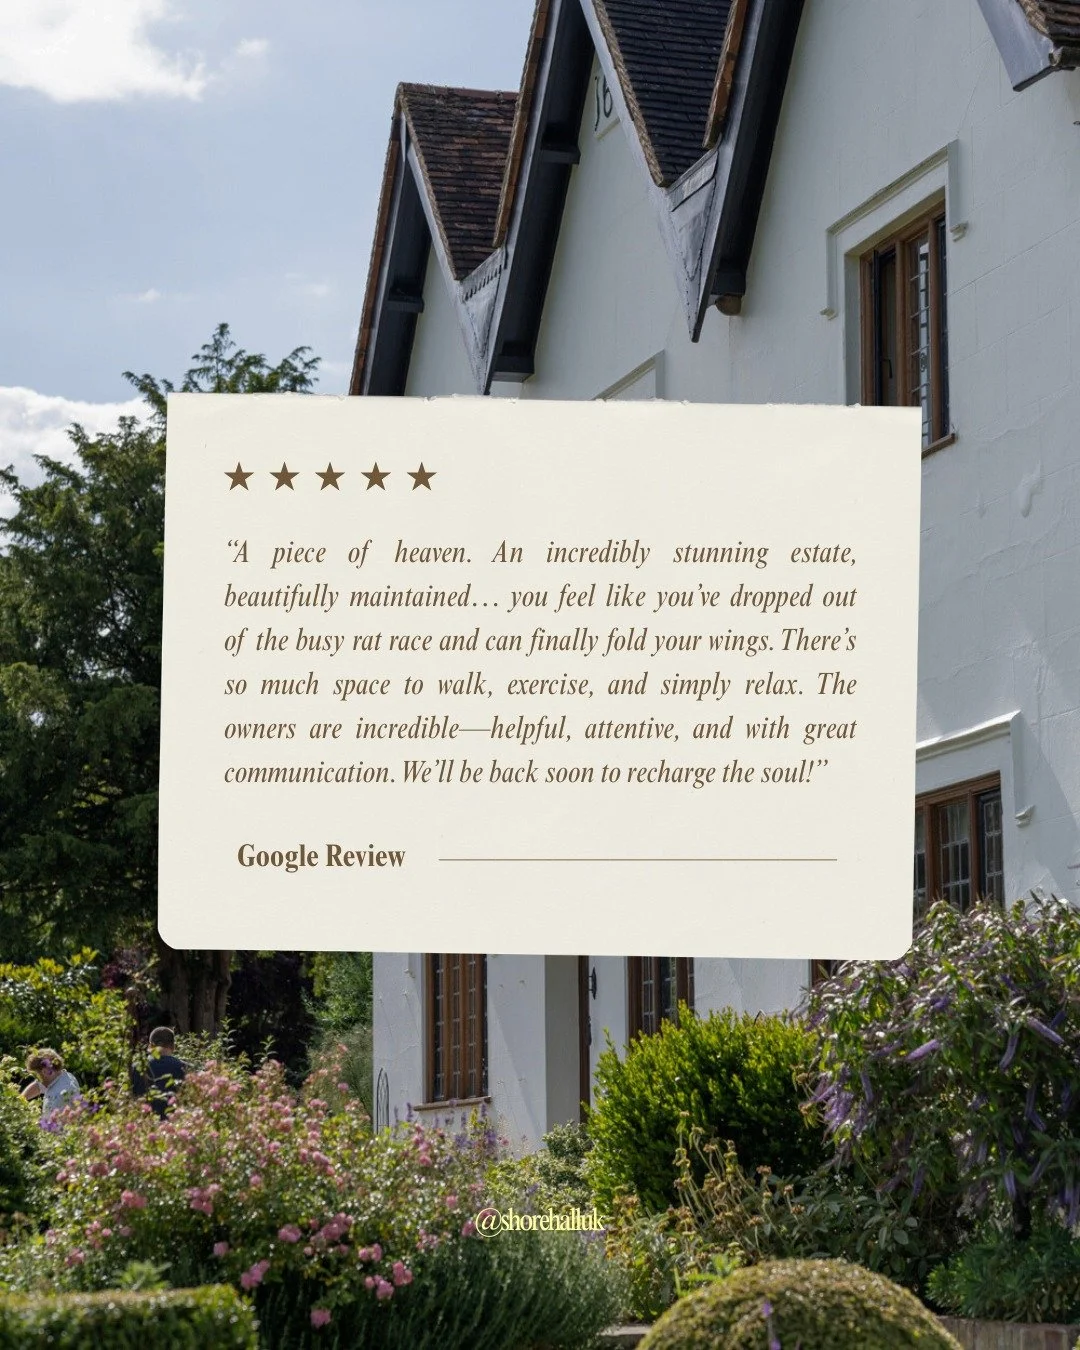 16
★★★★★
“A piece of heaven. An incredibly stunning estate,
beautifully maintained… you feel like you’ve dropped out
of the busy rat race and can finally fold your wings. There’s
so much space to walk, exercise, and simply relax. The
owners are incredible—helpful, attentive, and with great
communication. We’ll be back soon to recharge the soul!”
Google Review
@shorehalluk